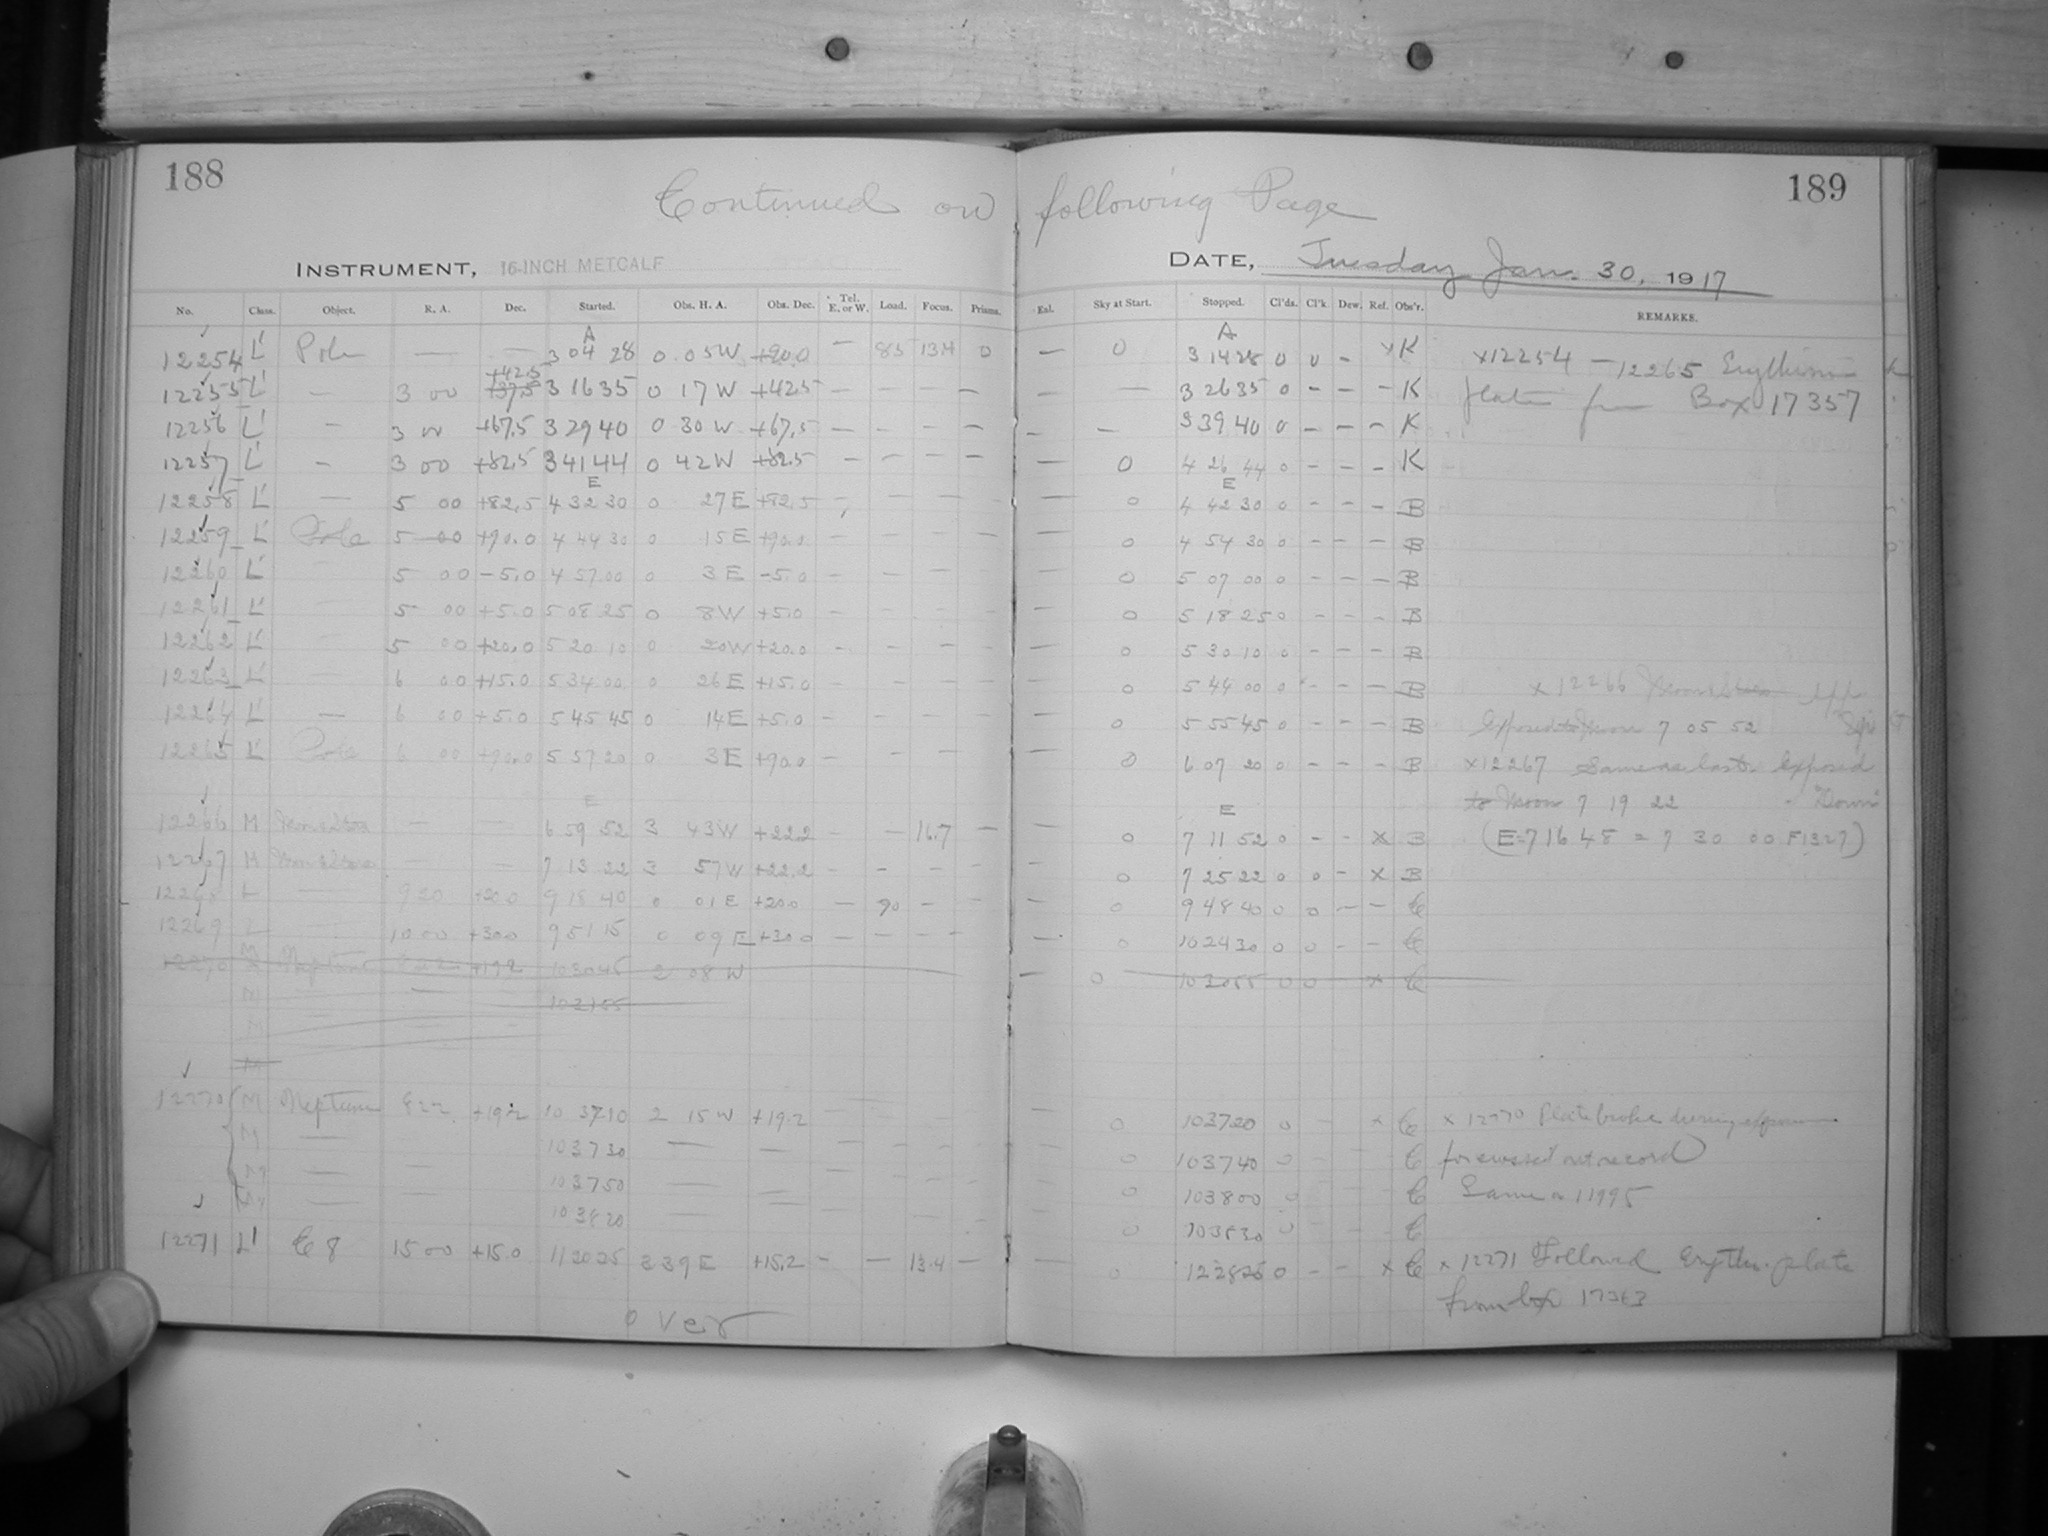 188
189
Continued on following Page
INSTRUMENT, 16-INCH METCALF
DATE, Tuesday Jan. 30, 1917
No. Class. Object. R. A. Dec. Started. Obs. H. A. Obs. Dec. Tel. E. or W. Load. Focus. Prisms. Exl. Sky at Start. Stopped. Cl'ds. Cl'k Dew. Ref. Obs'r. REMARKS.
A A
12254 L' Pole — — 3 04 28 0 05 W +90.0 — 85 13.4 0 — 0 3 14 28 0 0 – x K x12254 – 12265 Erythrosin
+42.5
12255 L' — 3 00 +37.5 3 16 35 0 17 W +42.5 — — — — — 3 26 35 0 – – – K plates from Box 17357
12256 L' – 3 00 +67.5 3 29 40 0 30 W +67.5 — — — — – — 3 39 40 0 – – – K
12257 L' – 3 00 +82.5 3 41 44 0 42 W +82.5 – — — — — 0 4 26 44 0 – – – K
E E
12258 L' — 5 00 +82.5 4 32 30 0 27 E +82.5 – – – – — 0 4 42 30 0 – – – B
12259 L' Pole 5 00 +90.0 4 44 30 0 15 E +90.0 – – – – — 0 4 54 30 0 – – – B
12260 L' — 5 00 –5.0 4 57 00 0 3 E –5.0 – – – – — 0 5 07 00 0 – – – B
12261 L' — 5 00 +5.0 5 08 25 0 8 W +5.0 – – – – — 0 5 18 25 0 – – – B
12262 L' — 5 00 +20.0 5 20 10 0 20 W +20.0 – – – – — 0 5 30 10 0 – – – B
12263 L' — 6 00 +15.0 5 34 00 0 26 E +15.0 – – – – — 0 5 44 00 0 – – – B x 12266
12264 L' — 6 00 +5.0 5 45 45 0 14 E +5.0 – – – – — 0 5 55 45 0 – – – B Exposed to Moon 7 05 52
12265 L' Pole 6 00 +90.0 5 57 20 0 3 E +90.0 – – – — 0 6 07 20 0 – – – B x12267 Same as last. Exposed
to Moon 7 19 22 – "Down"
E E
12266 M — — 6 59 52 3 43 W +22.2 – – 16.7 – 0 7 11 52 0 – – x B (E=7 16 48 = 7 30 00 F1327)
12267 M — — 7 13 22 3 57 W +22.2 – – – – — 0 7 25 22 0 0 – x B
12268 L — 9 20 +20.0 9 18 40 0 01 E +20.0 — 90 – – — 0 9 48 40 0 0 – – C
12269 L — 10 00 +30.0 9 51 15 0 09 E +30.0 – – – – — 0 10 24 30 0 0 – – C
12270 M Neptune 8 22 +19.2 10 30 45 2 08 W — 0 10 30 55 0 0 – x C
M — — 10 31 05
M
M
12270 M Neptune 8 22 +19.2 10 37 10 2 15 W +19.2 — 0 10 37 20 0 – x C x 12270 Plate broke during exposure
M — 10 37 30 — 0 10 37 40 0 C for crossed out record
M — 10 37 50 — 0 10 38 00 0 C Same as 11995
M — 10 38 20 — 0 10 38 30 0 C
12271 L' C 8 15 00 +15.0 11 20 25 3 39 E +15.2 – – 13.4 – — 0 12 28 25 0 – – x C x 12271 Followed Eryth. plate
from box 17363
over